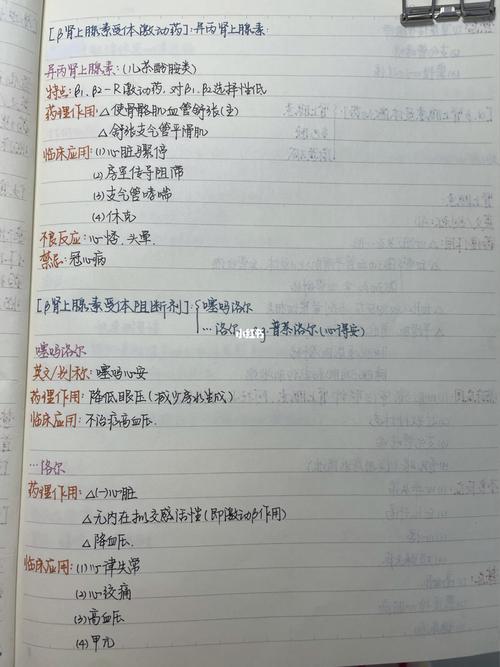 [β肾上腺素受体激动药]:异丙肾上腺素:
异丙肾上腺素:(儿茶酚胺类)
特点:β₁、β₂-R激动药,对β₁、β₂选择性低
药理作用:△使骨骼肌血管舒张(主)
△舒张支气管平滑肌
临床应用:(1)心脏骤停
(2)房室传导阻滞
(3)支气管哮喘
(4)休克
不良反应:心悸、头晕
禁忌:冠心病
[β肾上腺素受体阻断剂]:{噻吗洛尔
…洛尔 普萘洛尔(心得安)
小红书
噻吗洛尔
英文/别称:噻吗心安
药理作用:降低眼压(减少房水生成)
临床应用:不治疗高血压.
…洛尔
药理作用:△(-)心脏
△无内在拟交感活性(即激动β作用)
△降血压.
临床应用:(1)心律失常
(2)心绞痛
(3)高血压
(4)甲亢